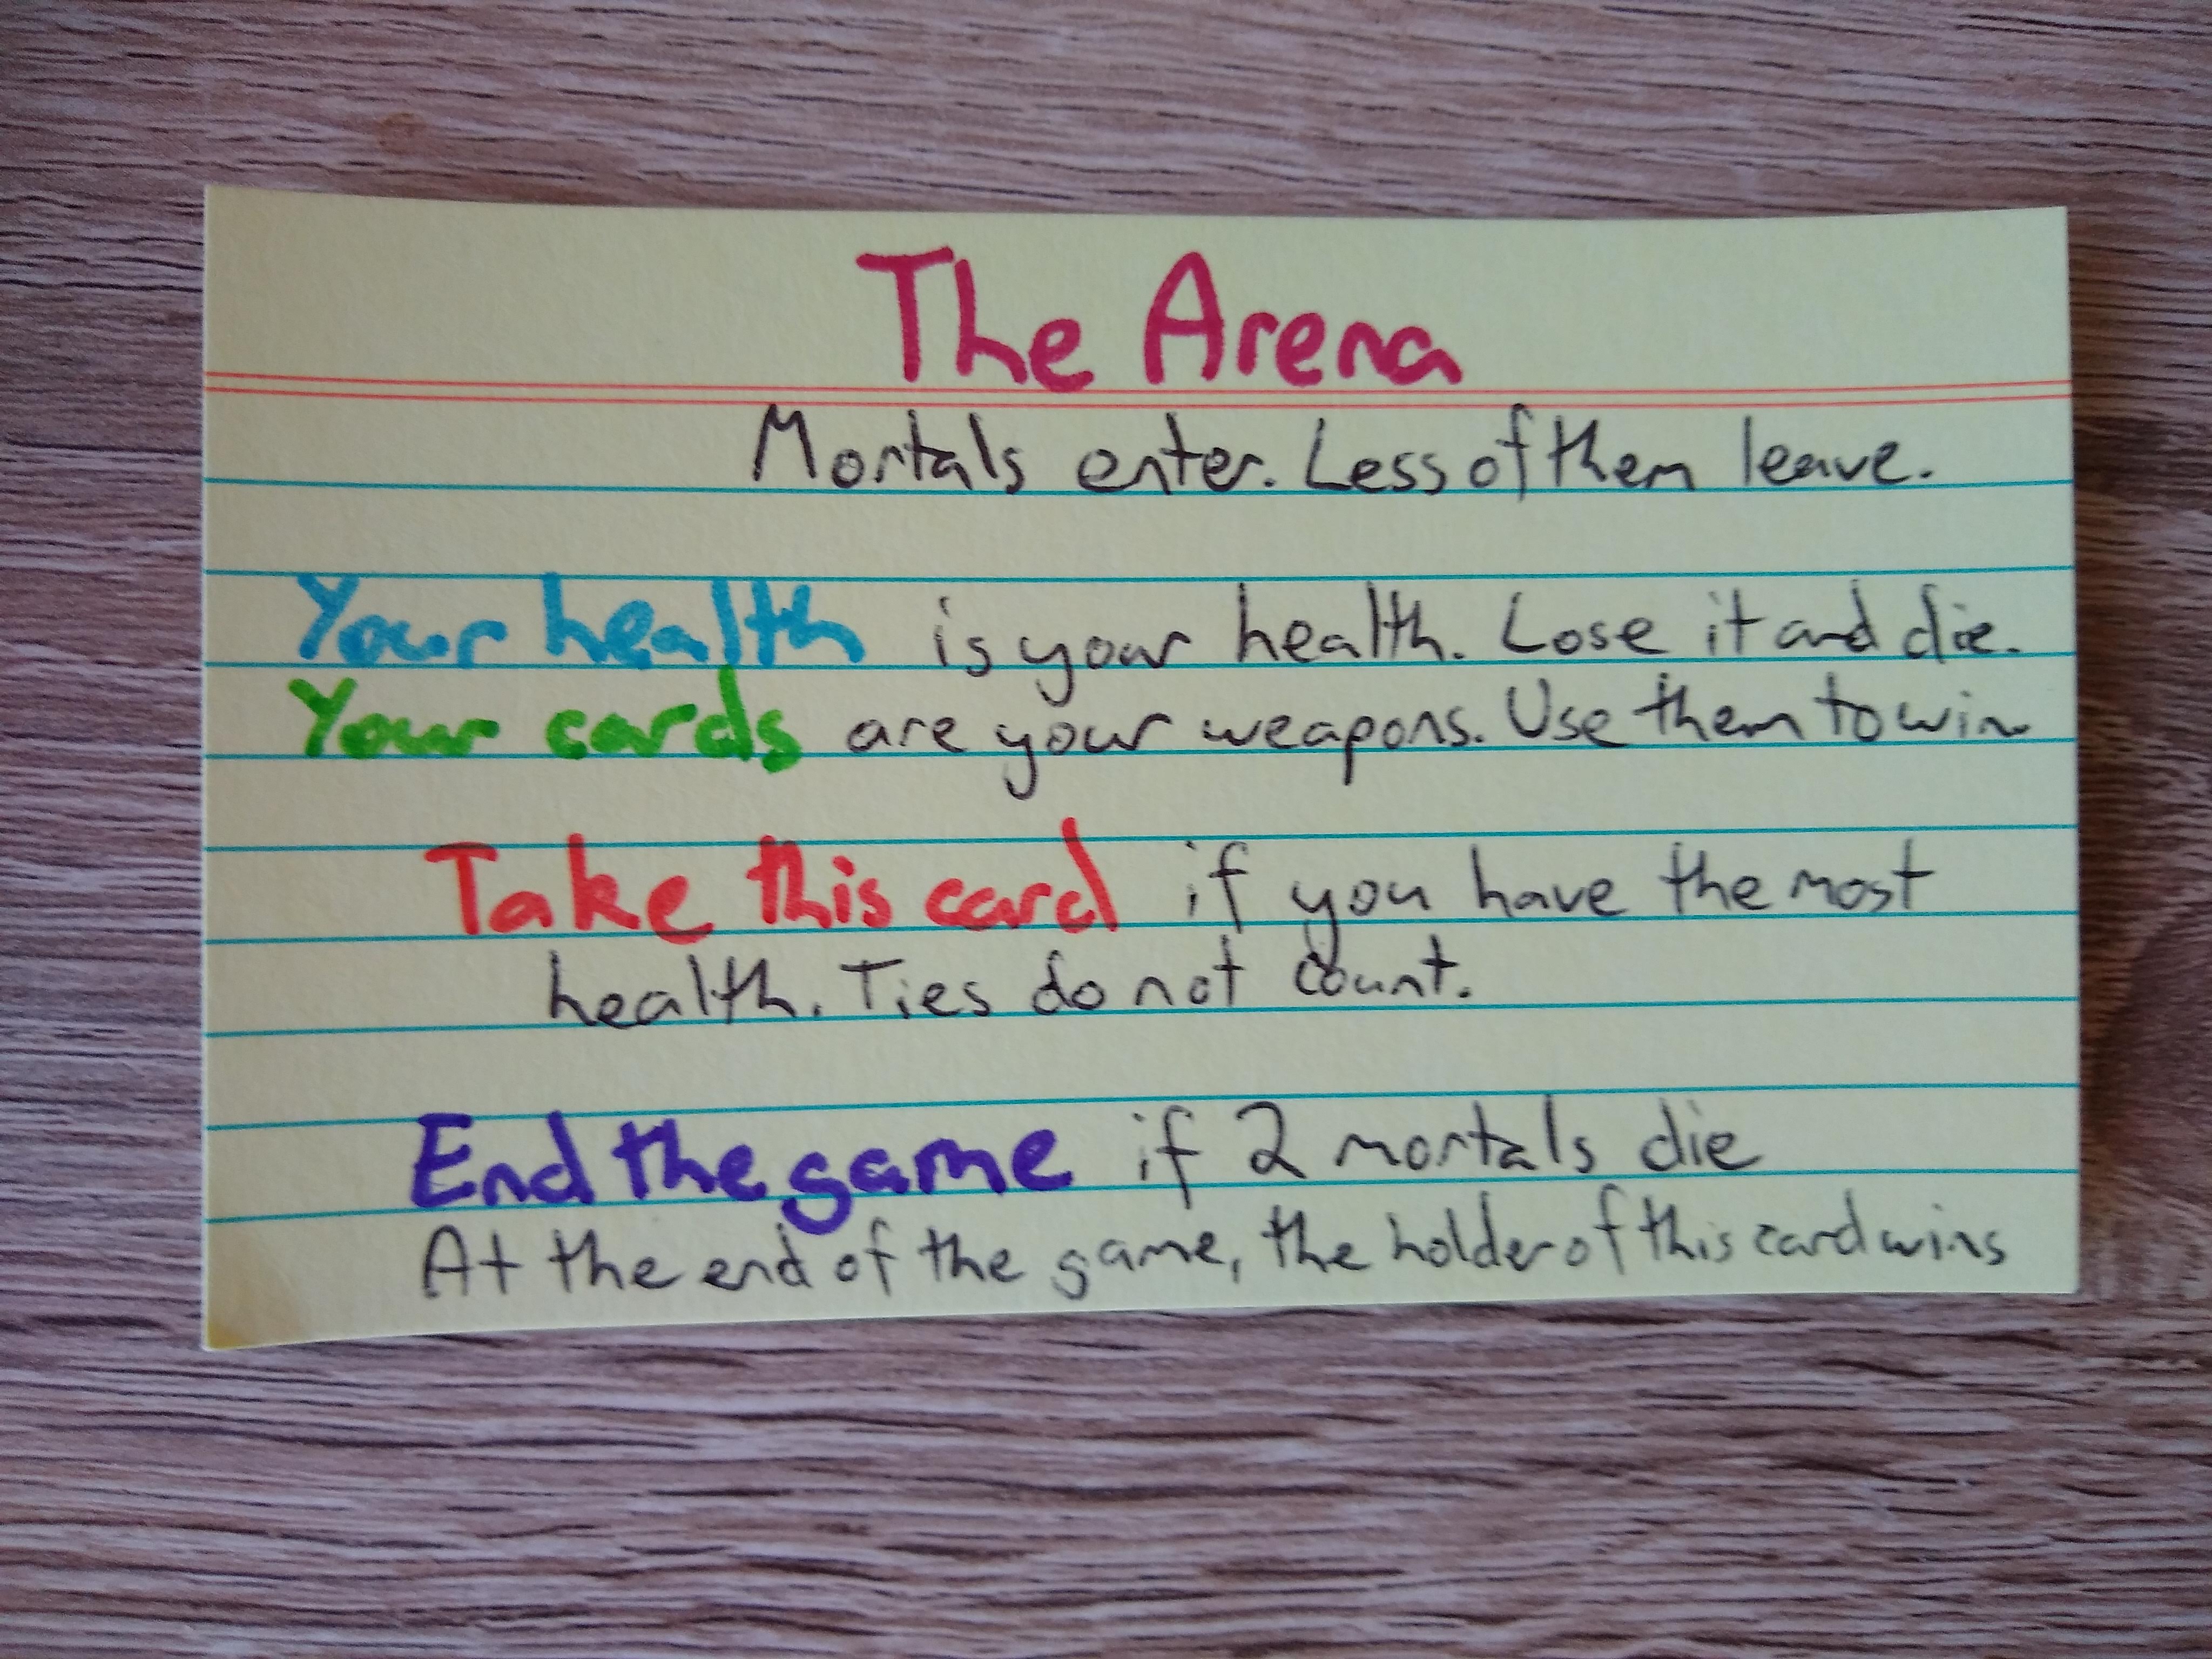 The Arena
Mortals enter. Less of them leave.
Your health is your health. Lose it and die.
Your cards are your weapons. Use them to win
Take this card if you have the most
health. Ties do not count.
End the game if 2 mortals die
At the end of the game, the holder of this card wins